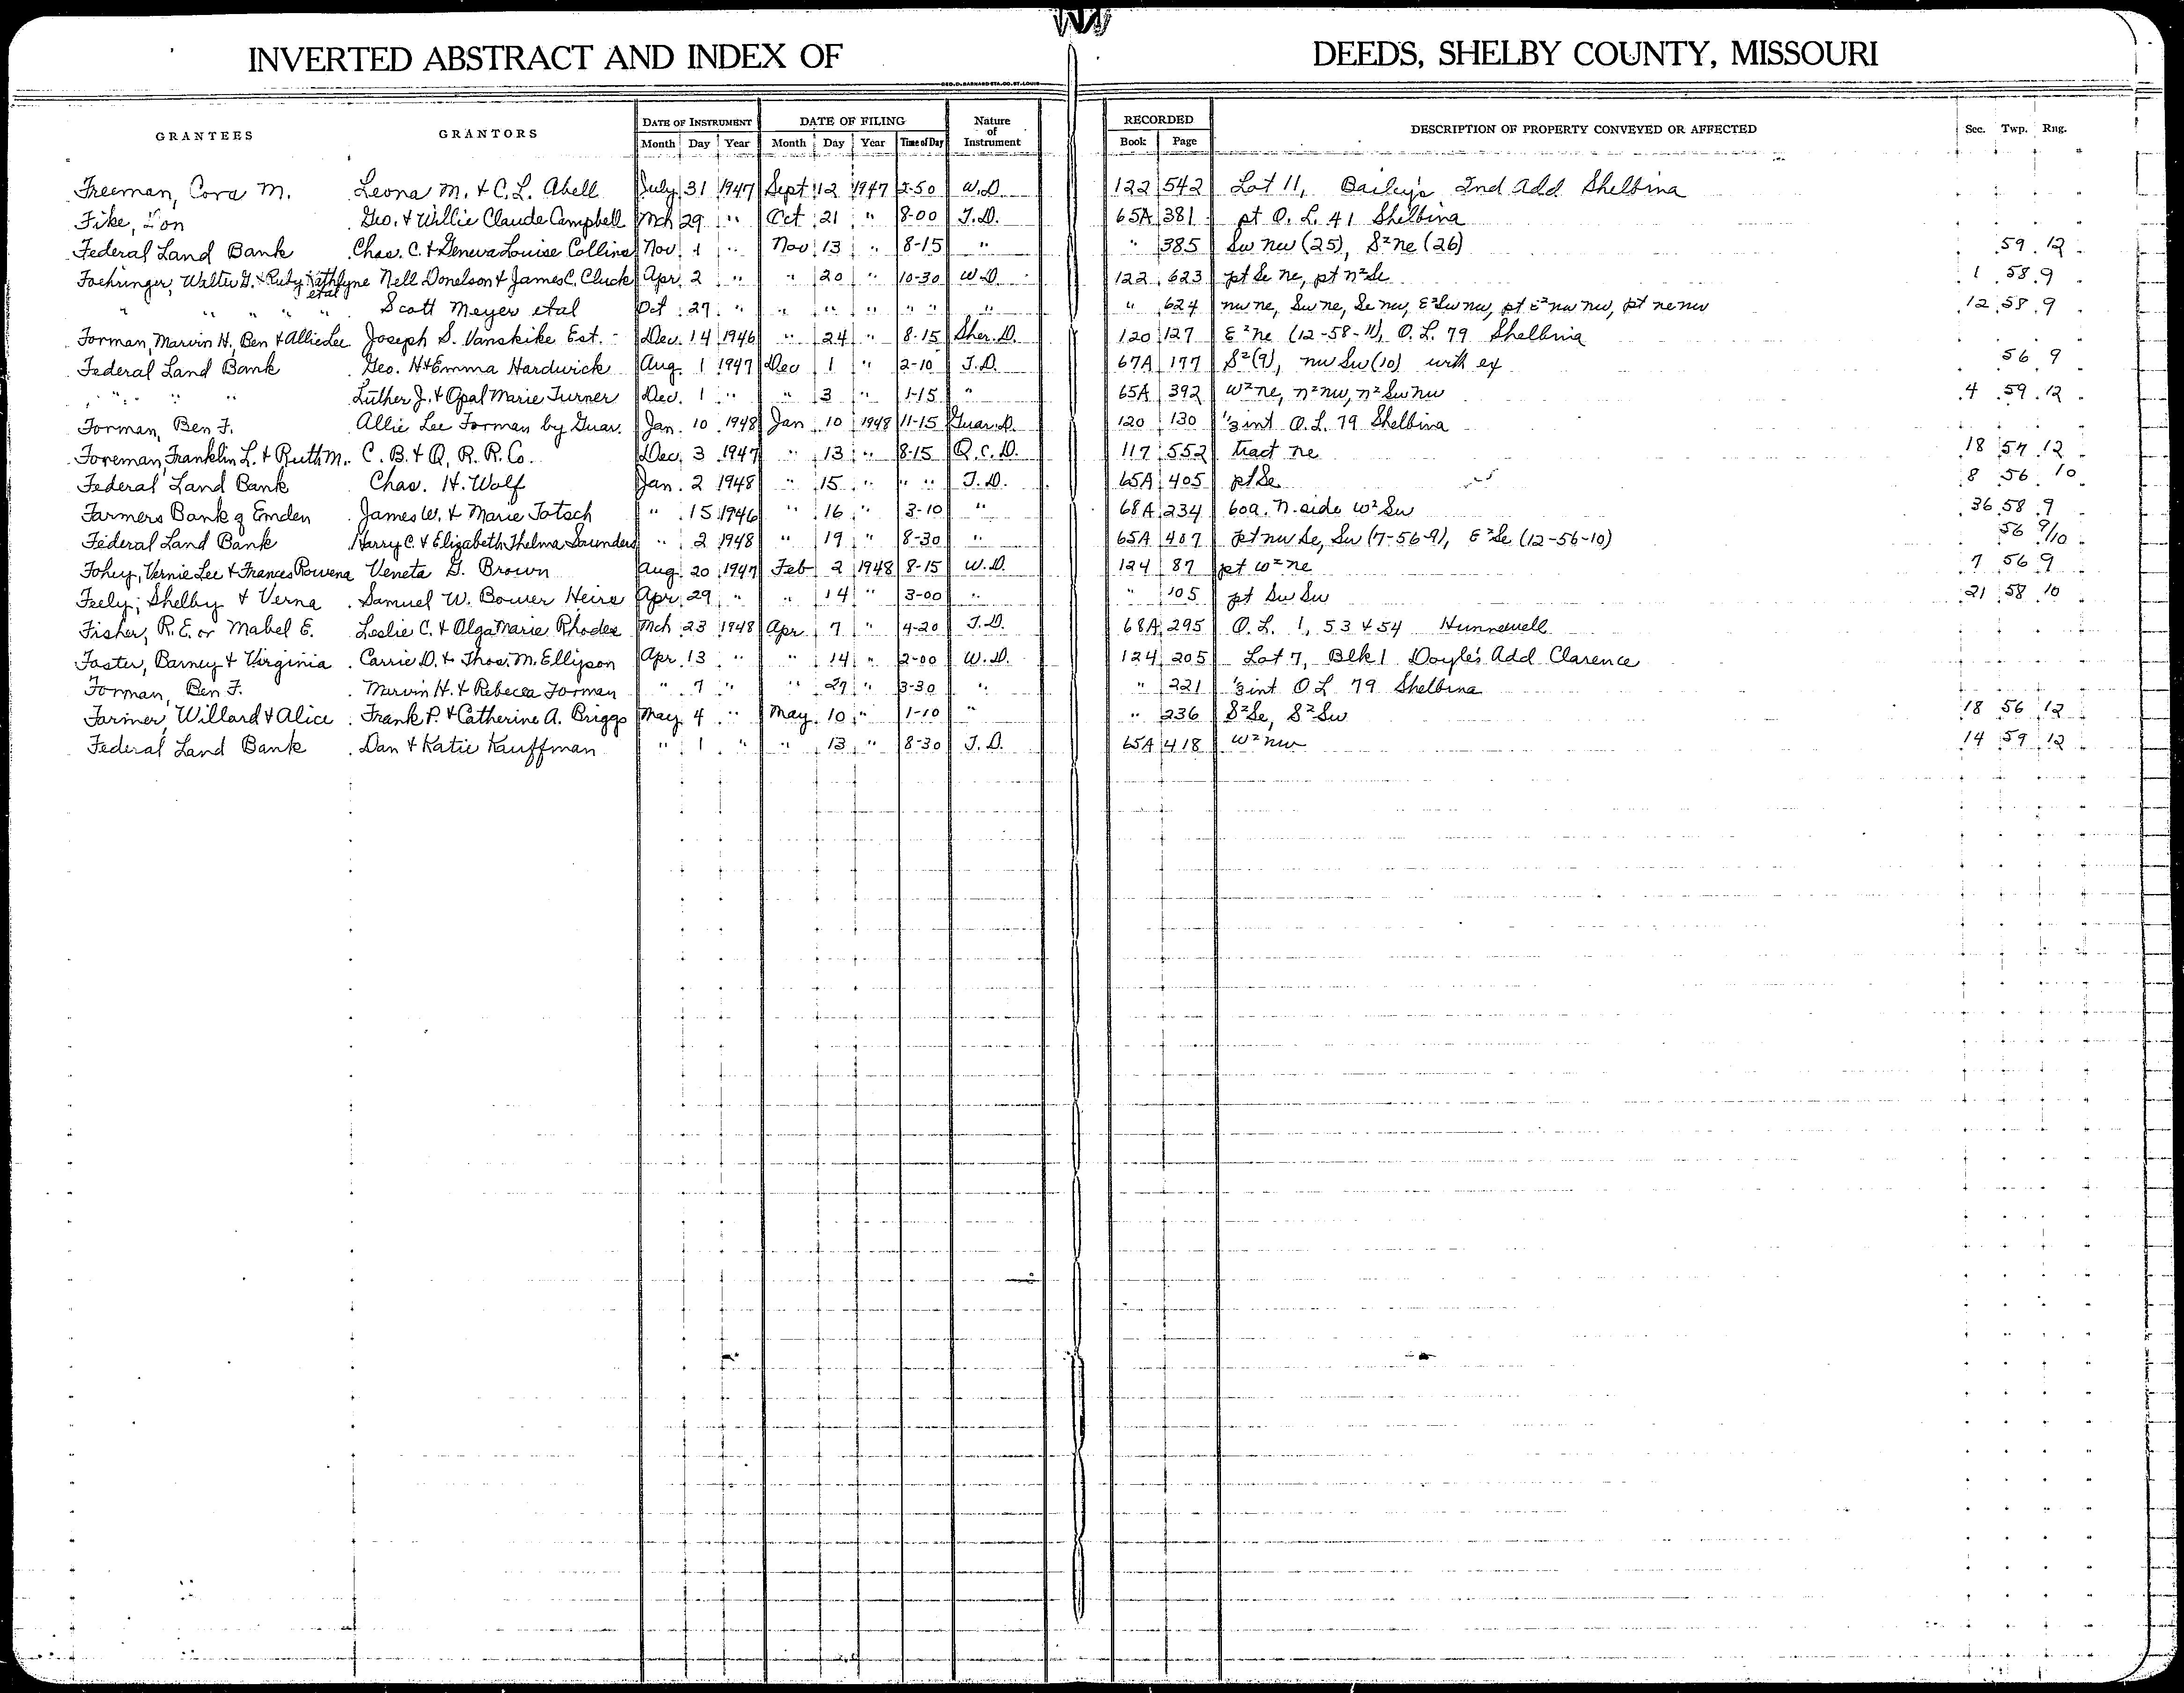 INVERTED ABSTRACT AND INDEX OF DEEDS, SHELBY COUNTY, MISSOURI
GEO. D. BARNARD STA. CO. ST. LOUIS
GRANTEES GRANTORS DATE OF INSTRUMENT DATE OF FILING Nature of Instrument RECORDED DESCRIPTION OF PROPERTY CONVEYED OR AFFECTED Sec. Twp. Rng.
Month Day Year Month Day Year Time of Day Book Page
Freeman, Cora M. Leona M. & C.L. Abell July 31 1947 Sept 12 1947 2-50 W.D. 122 542 Lot 11, Bailey's 2nd Add Shelbina
Fike, Lon Geo. & Willie Claude Campbell Mch 29 " Oct 21 " 8-00 T.D. 65A 381 pt O. L. 41 Shelbina
Federal Land Bank Chas. C. & Geneva Louise Collins Nov 1 " Nov 13 " 8-15 " " 385 Sw nw (25), S² ne (26) 59 12
Foehringer, Walter G. & Ruby Kathlyne etal Nell Donelson & James C. Cluck Apr. 2 " " 20 " 10-30 W.D. 122 623 pt Se ne, pt n² Se 1 58 9
" " " " " Scott Meyer etal Oct 27 " " " " " " " " 624 nw ne, Sw ne, Se nw, E² Sw nw, pt E² nw nw, pt ne nw 12 58 9
Forman, Marvin H., Ben & Allie Lee Joseph S. Vanskike Est. Dec. 14 1946 " 24 " 8-15 Sher. D. 120 127 E² ne (12-58-11), O. L. 79 Shelbina
Federal Land Bank Geo. H & Emma Hardwick Aug. 1 1947 Dec 1 " 2-10 T.D. 67A 177 S² (9), nw Sw (10) with ex 56 9
" " " Luther J. & Opal Marie Turner Dec. 1 " " 3 " 1-15 " 65A 392 W² ne, n² nw, n² Sw nw 4 59 12
Forman, Ben F. Allie Lee Forman by Guar. Jan. 10 1948 Jan 10 1948 11-15 Guar. D. 120 130 ⅓ int O. L. 79 Shelbina
Foreman, Franklin L. & Ruth M. C. B. & Q. R. R. Co. Dec. 3 1947 " 13 " 8-15 Q. C. D. 117 552 tract ne 18 57 12
Federal Land Bank Chas. H. Wolf Jan. 2 1948 " 15 " " " T. D. 65A 405 pt Se 8 56 10
Farmers Bank of Emden James W. & Marie Totsch " 15 1946 " 16 " 3-10 " 68A 234 60a. N. side W² Sw 36 58 9
Federal Land Bank Harry C. & Elizabeth Thelma Saunders " 2 1948 " 19 " 8-30 " 65A 407 pt nw Se, Sw (7-56-9), E² Se (12-56-10) 56 9/10
Fohey, Vernie Lee & Frances Rowena Veneta G. Brown Aug. 20 1947 Feb 2 1948 8-15 W.D. 124 87 pt W² ne 7 56 9
Feely, Shelby & Verna Samuel W. Bower Heirs Apr. 29 " " 14 " 3-00 " " 105 pt Sw Sw 21 58 10
Fisher, R. E. or Mabel E. Leslie C. & Olga Marie Rhodes Mch 23 1948 Apr 7 " 4-20 T.D. 68A 295 O. L. 1, 53 & 54 Hunnewell
Foster, Barney & Virginia Carrie D. & Thos. M. Ellipson Apr. 13 " " 14 " 2-00 W.D. 124 205 Lot 7, Blk 1 Doyle's Add Clarence
Forman, Ben F. Marvin H. & Rebecca Forman " 7 " " 27 " 3-30 " " 221 ⅓ int O L 79 Shelbina
Farmer, Willard & Alice Frank P. & Catherine A. Briggs May 4 " May 10 " 1-10 " " 236 S² Se, S² Sw 18 56 12
Federal Land Bank Dan & Katie Kauffman " 1 " " 13 " 8-30 T. D. 65A 418 W² nw 14 59 12